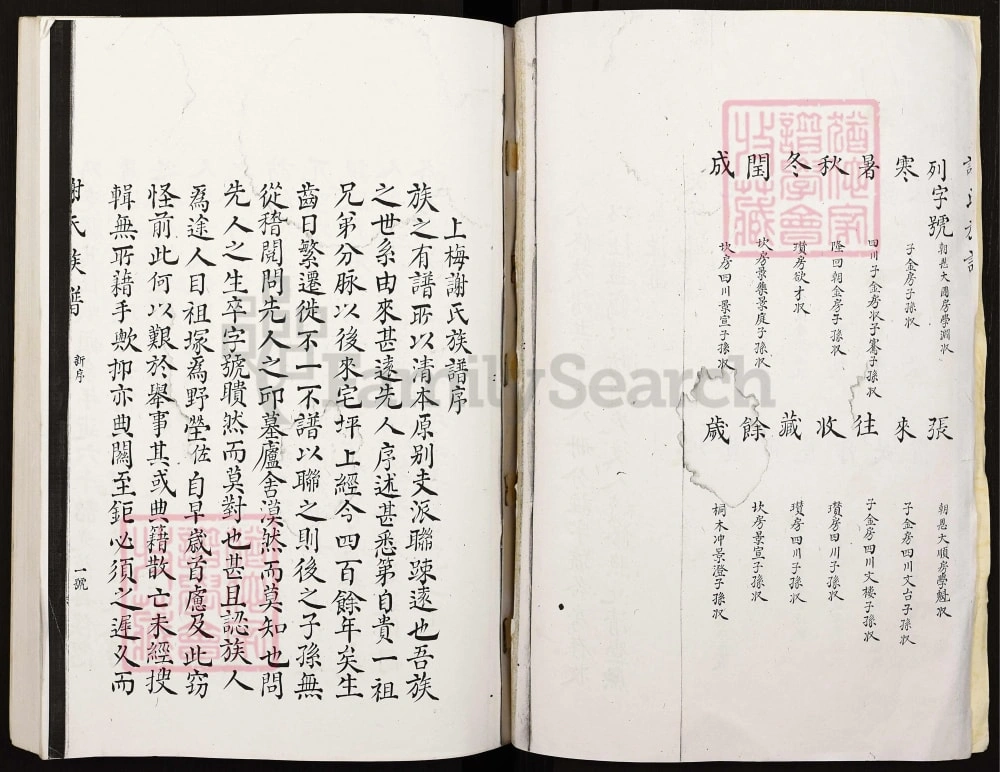 列字號
張
朝恩大爵房學淵収
朝恩大順房學魁収
寒
來
子金房子孫収
子金房四川文台子孫収
暑
往
四川子金房収子騫子孫収
子金房四川文楼子孫収
秋
收
隆回朝金房子孫収
瓚房四川子孫収
冬
藏
瓚房欲才収
瓚房四川子孫収
閏
餘
坎房景樂景庭子孫収
坎房景宣子孫収
成
歲
坎房四川景宣子孫収
桐木冲景澄子孫収
上梅謝氏族譜序
族之有譜所以清本原別支派聯踈遠也吾族
之世系由來甚遠先人序述甚悉第自貴一祖
兄弟分脉以後來宅坪上經今四百餘年矣生
齒日繁遷徙不一不譜以聯之則後之子孫無
從稽閱問先人之邱墓廬舍漠然而莫知也問
先人之生卒字號瞶然而莫對也甚且認族人
爲途人目祖塚爲野塋佐自早歲首慮及此窃
怪前此何以艱於舉事其或典籍散亡未經搜
輯無所藉手歟抑亦典闗至鉅必須之遲乆而
謝氏族譜
新序
一號
FamilySearch